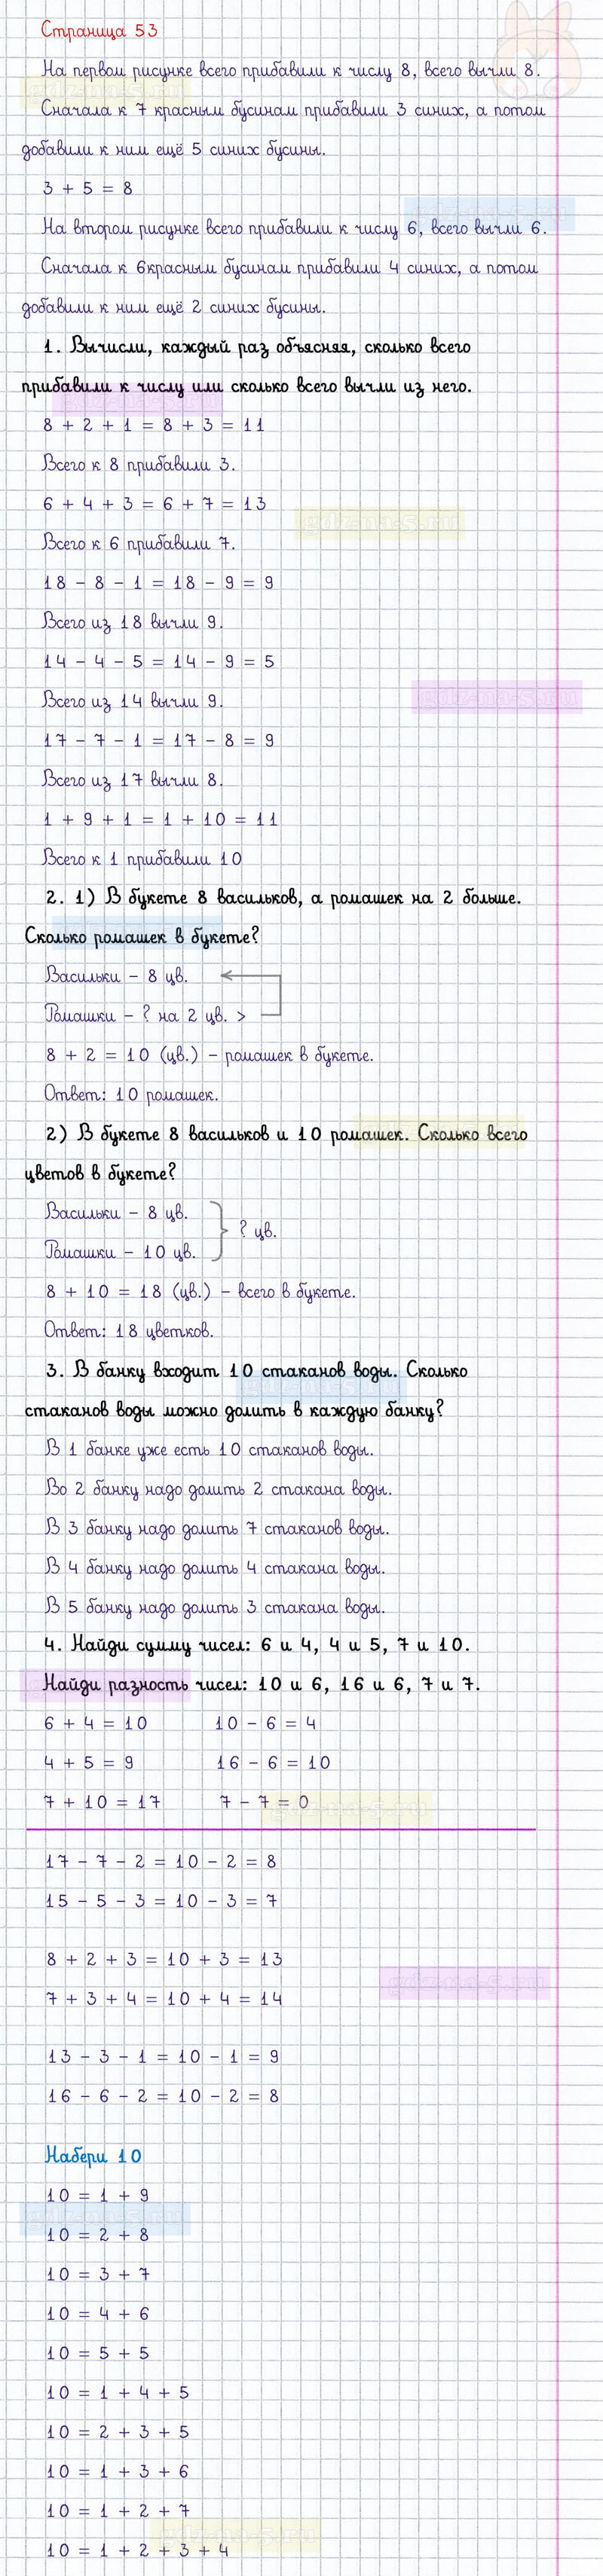 Страница 53
На первом рисунке всего прибавили к числу 8, всего вычли 8.
gdz-na-5.ru
Сначала к 7 красным бусинам прибавили 3 синих, а потом
добавили к ним ещё 5 синих бусины.
3 + 5 = 8
На втором рисунке всего прибавили к числу 6, всего вычли 6.
Сначала к 6красным бусинам прибавили 4 синих, а потом
добавили к ним ещё 2 синих бусины.
1. Вычисли, каждый раз объясняя, сколько всего
прибавили к числу или сколько всего вычли из него.
8 + 2 + 1 = 8 + 3 = 11
Всего к 8 прибавили 3.
6 + 4 + 3 = 6 + 7 = 13
gdz-na-5.ru
Всего к 6 прибавили 7.
18 - 8 - 1 = 18 - 9 = 9
Всего из 18 вычли 9.
14 - 4 - 5 = 14 - 9 = 5
Всего из 14 вычли 9.
gdz-na-5.ru
17 - 7 - 1 = 17 - 8 = 9
Всего из 17 вычли 8.
1 + 9 + 1 = 1 + 10 = 11
Всего к 1 прибавили 10
2. 1) В букете 8 васильков, а ромашек на 2 больше.
Сколько ромашек в букете?
Васильки - 8 цв.
Ромашки - ? на 2 цв. >
8 + 2 = 10 (цв.) - ромашек в букете.
Ответ: 10 ромашек.
2) В букете 8 васильков и 10 ромашек. Сколько всего
цветов в букете?
Васильки - 8 цв.
? цв.
Ромашки - 10 цв.
8 + 10 = 18 (цв.) - всего в букете.
Ответ: 18 цветков.
3. В банку входит 10 стаканов воды. Сколько
стаканов воды можно долить в каждую банку?
В 1 банке уже есть 10 стаканов воды.
Во 2 банку надо долить 2 стакана воды.
В 3 банку надо долить 7 стаканов воды.
В 4 банку надо долить 4 стакана воды.
В 5 банку надо долить 3 стакана воды.
4. Найди сумму чисел: 6 и 4, 4 и 5, 7 и 10.
Найди разность чисел: 10 и 6, 16 и 6, 7 и 7.
6 + 4 = 10 10 - 6 = 4
4 + 5 = 9 16 - 6 = 10
7 + 10 = 17 7 - 7 = 0
gdz-na-5.ru
17 - 7 - 2 = 10 - 2 = 8
15 - 5 - 3 = 10 - 3 = 7
8 + 2 + 3 = 10 + 3 = 13
gdz-na-5.ru
7 + 3 + 4 = 10 + 4 = 14
13 - 3 - 1 = 10 - 1 = 9
16 - 6 - 2 = 10 - 2 = 8
Набери 10
10 = 1 + 9
gdz-na-5.ru
10 = 2 + 8
10 = 3 + 7
10 = 4 + 6
10 = 5 + 5
10 = 1 + 4 + 5
10 = 2 + 3 + 5
10 = 1 + 3 + 6
10 = 1 + 2 + 7
gdz-na-5.ru
10 = 1 + 2 + 3 + 4